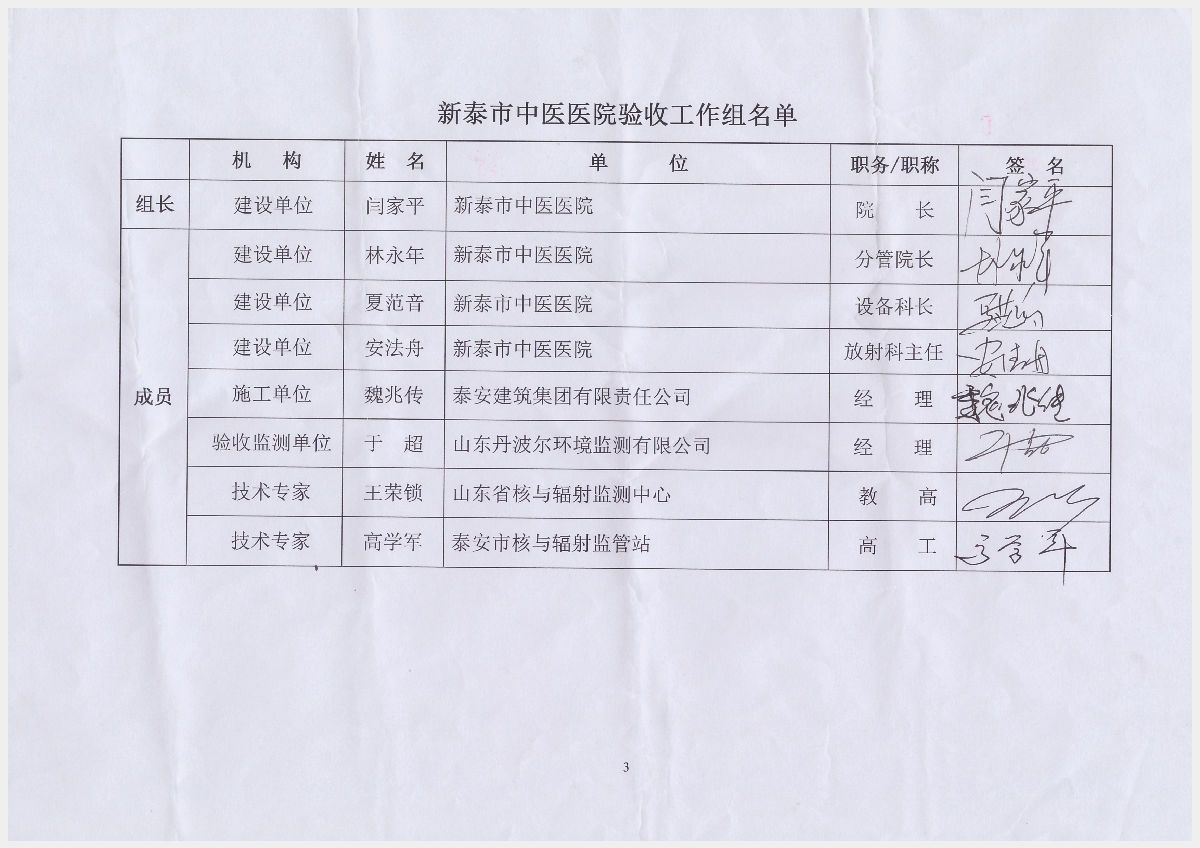 新泰市中医医院验收工作组名单
机 构 姓 名 单 位 职务/职称 签 名
组长 建设单位 闫家平 新泰市中医医院 院 长 闫家平
成员
建设单位 林永年 新泰市中医医院 分管院长
建设单位 夏范音 新泰市中医医院 设备科长
建设单位 安法舟 新泰市中医医院 放射科主任 安法舟
施工单位 魏兆传 泰安建筑集团有限责任公司 经 理 魏兆传
验收监测单位 于 超 山东丹波尔环境监测有限公司 经 理 于超
技术专家 王荣锁 山东省核与辐射监测中心 教 高
技术专家 高学军 泰安市核与辐射监管站 高 工 高学军
3